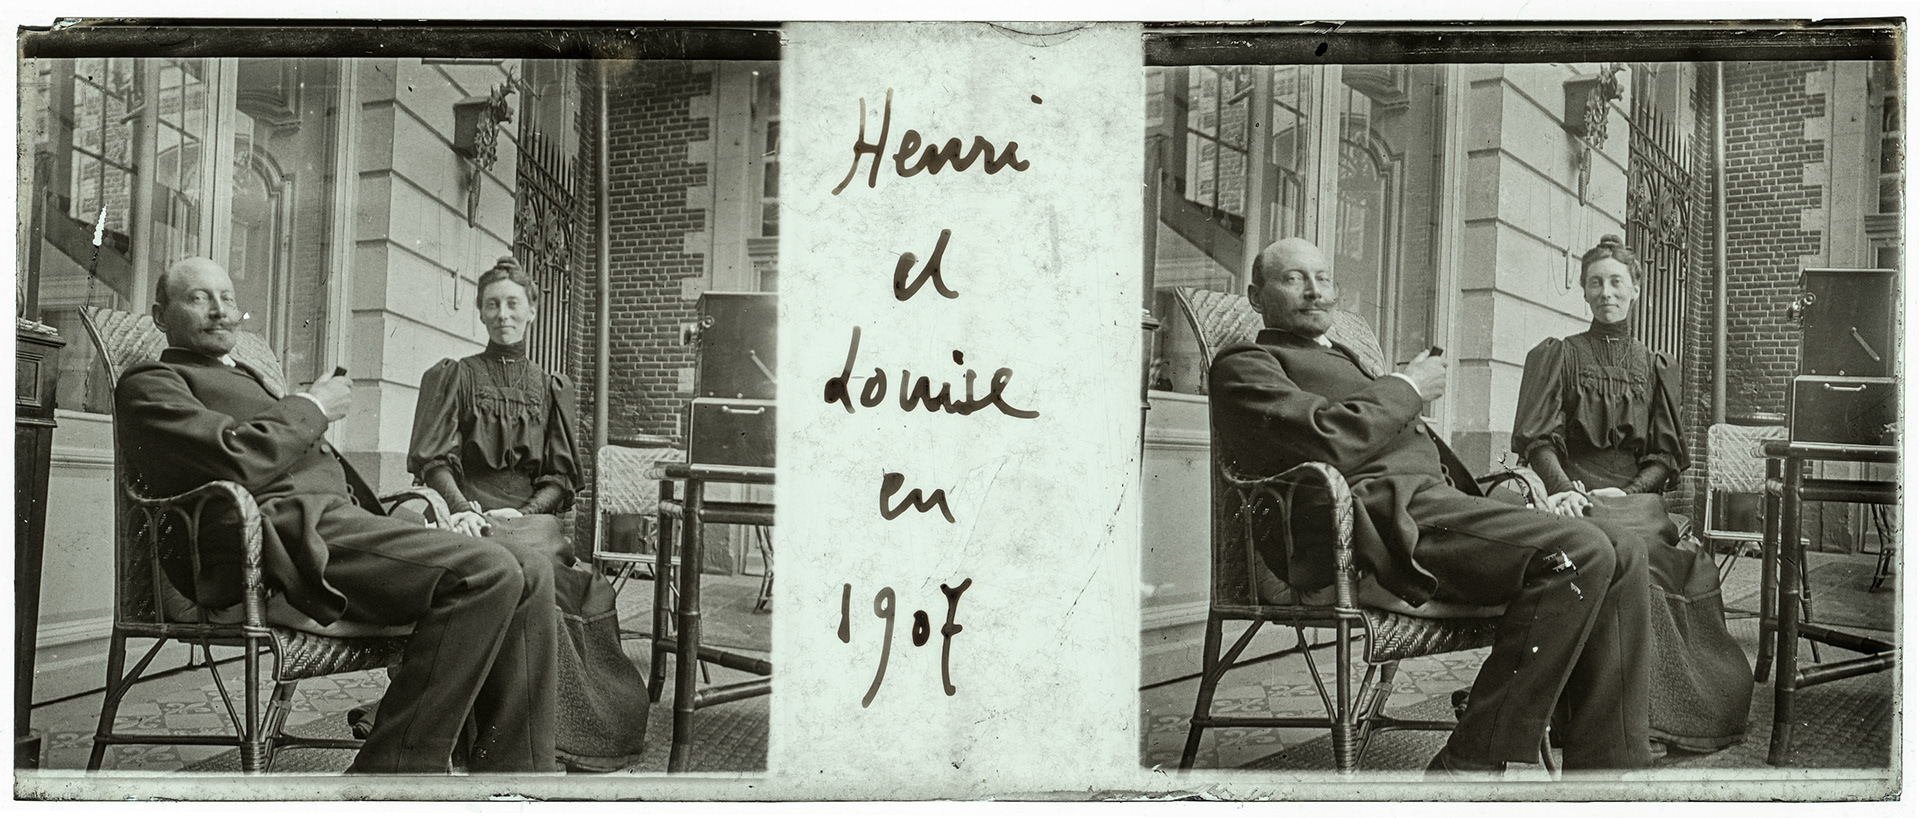 Henri
et
Louise
en
1907